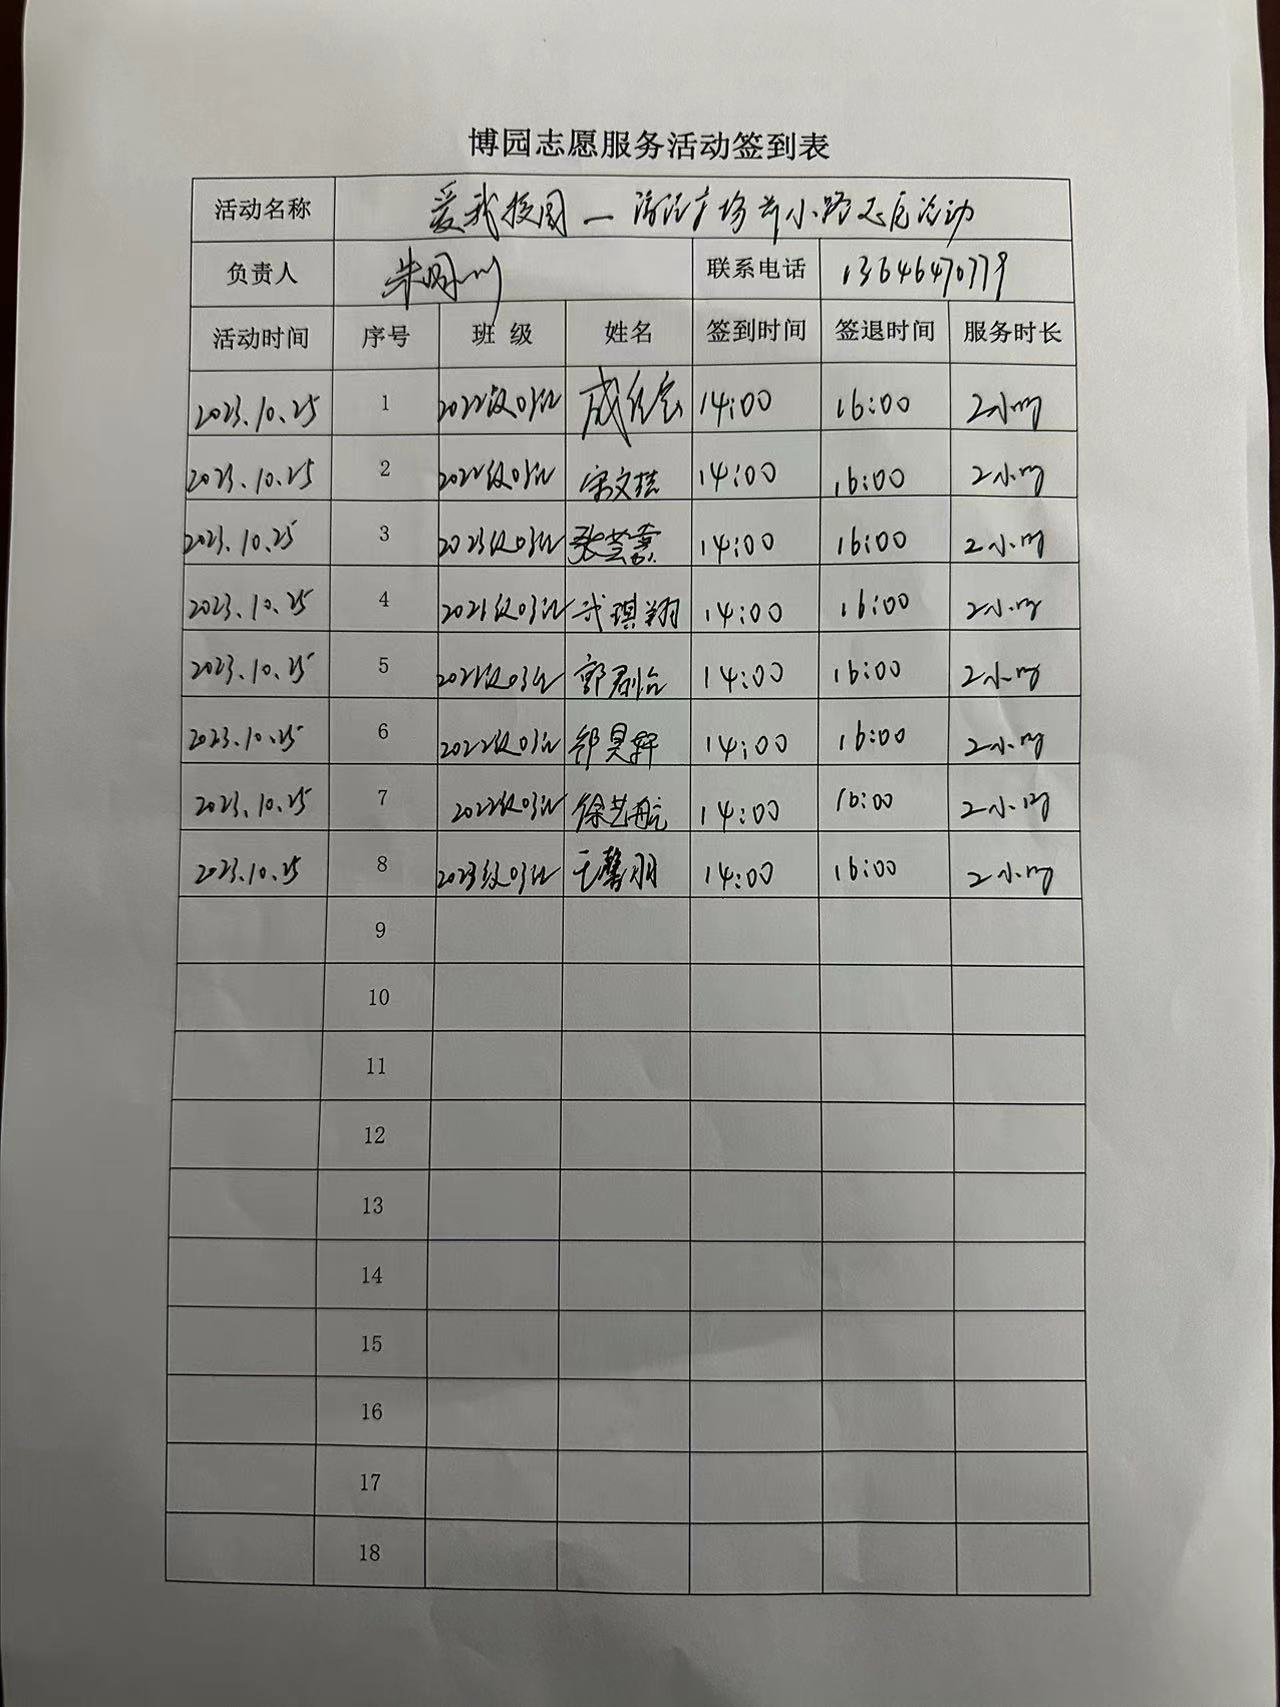 博园志愿服务活动签到表
活动名称 爱我校园—清理广场前小路志愿活动
负责人 朱国川 联系电话 13646470779
活动时间 序号 班 级 姓名 签到时间 签退时间 服务时长
2023.10.25 1 2022级03班 成 14:00 16:00 2小时
2023.10.25 2 2022级03班 宋文喆 14:00 16:00 2小时
2023.10.25 3 2023级03班 张芸熏 14:00 16:00 2小时
2023.10.25 4 2021级03班 武琪翔 14:00 16:00 2小时
2023.10.25 5 2021级03班 郭君怡 14:00 16:00 2小时
2023.10.25 6 2022级03班 邹昊轩 14:00 16:00 2小时
2023.10.25 7 2022级03班 徐艺航 14:00 16:00 2小时
2023.10.25 8 2023级03班 王馨羽 14:00 16:00 2小时
9
10
11
12
13
14
15
16
17
18